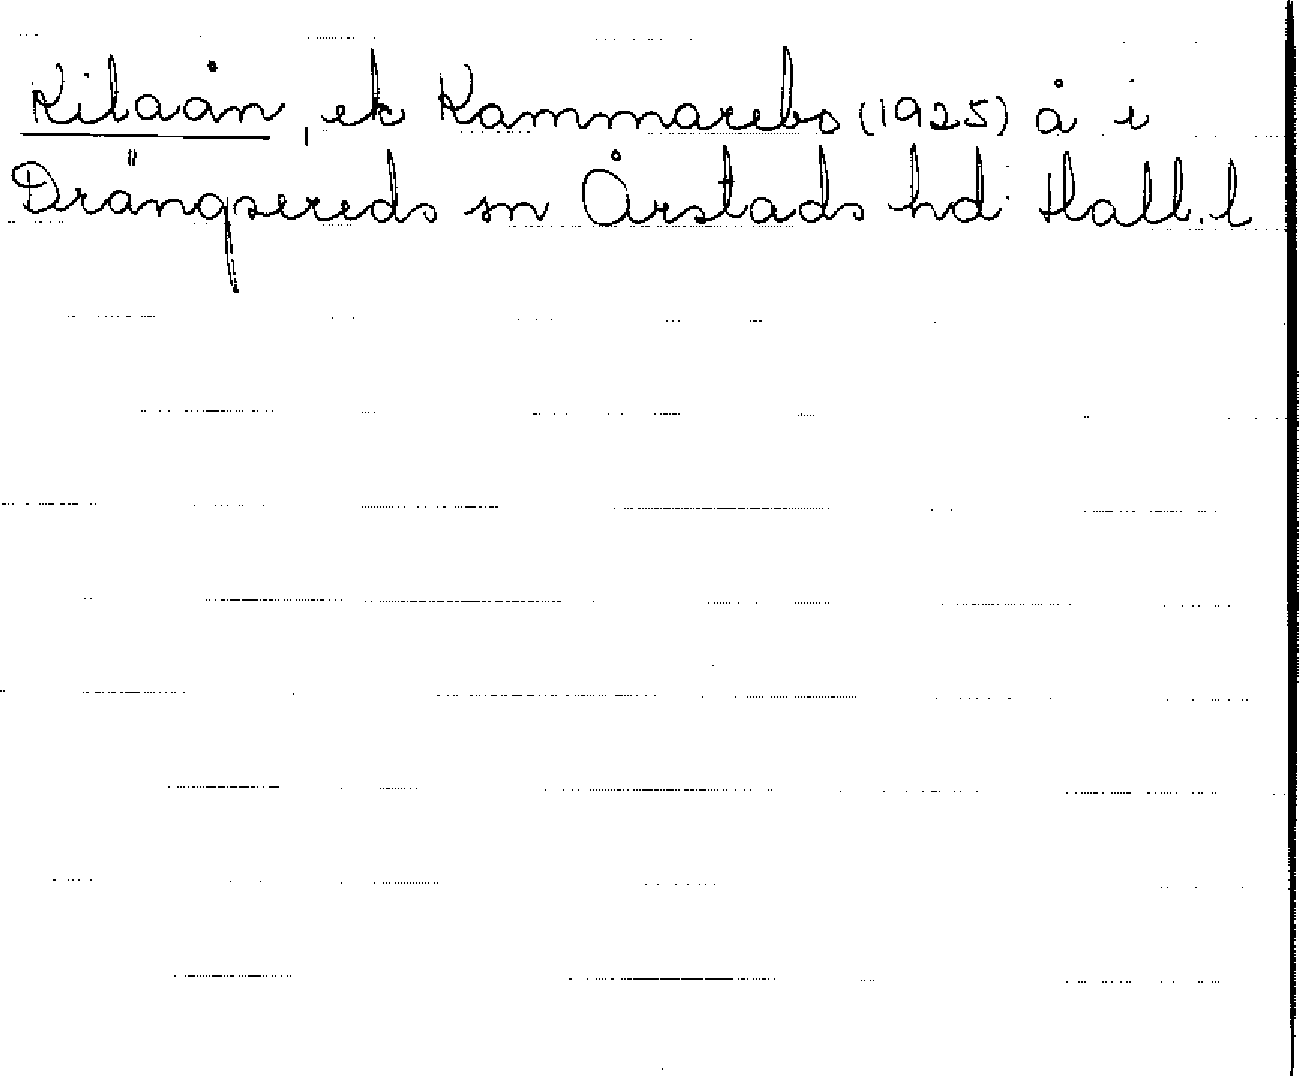 Kilaån, ek Kammarebo (1925) å i
Drängsereds sn Årstads hd Hall. l